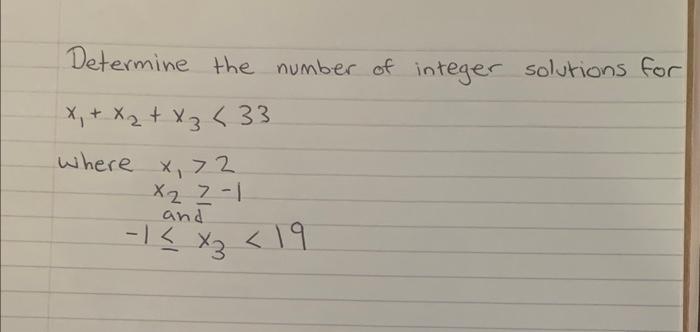 Determine the number of integer solutions for
x₁ + x₂ + x₃ < 33
where x₁ > 2
x₂ ≥ -1
and
-1 ≤ x₃ < 19